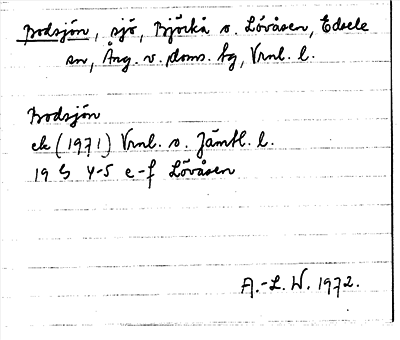 Bodsjön, sjö, Björkå o. Lövåsen, Edsele
sn, Ång. v. doms. hg, Vrnl. l.
Bodsjön
ek (1971) Vrnl. o. Jämtl. l.
19 G 4-5 e-f Lövåsen
A.-L. W. 1972.